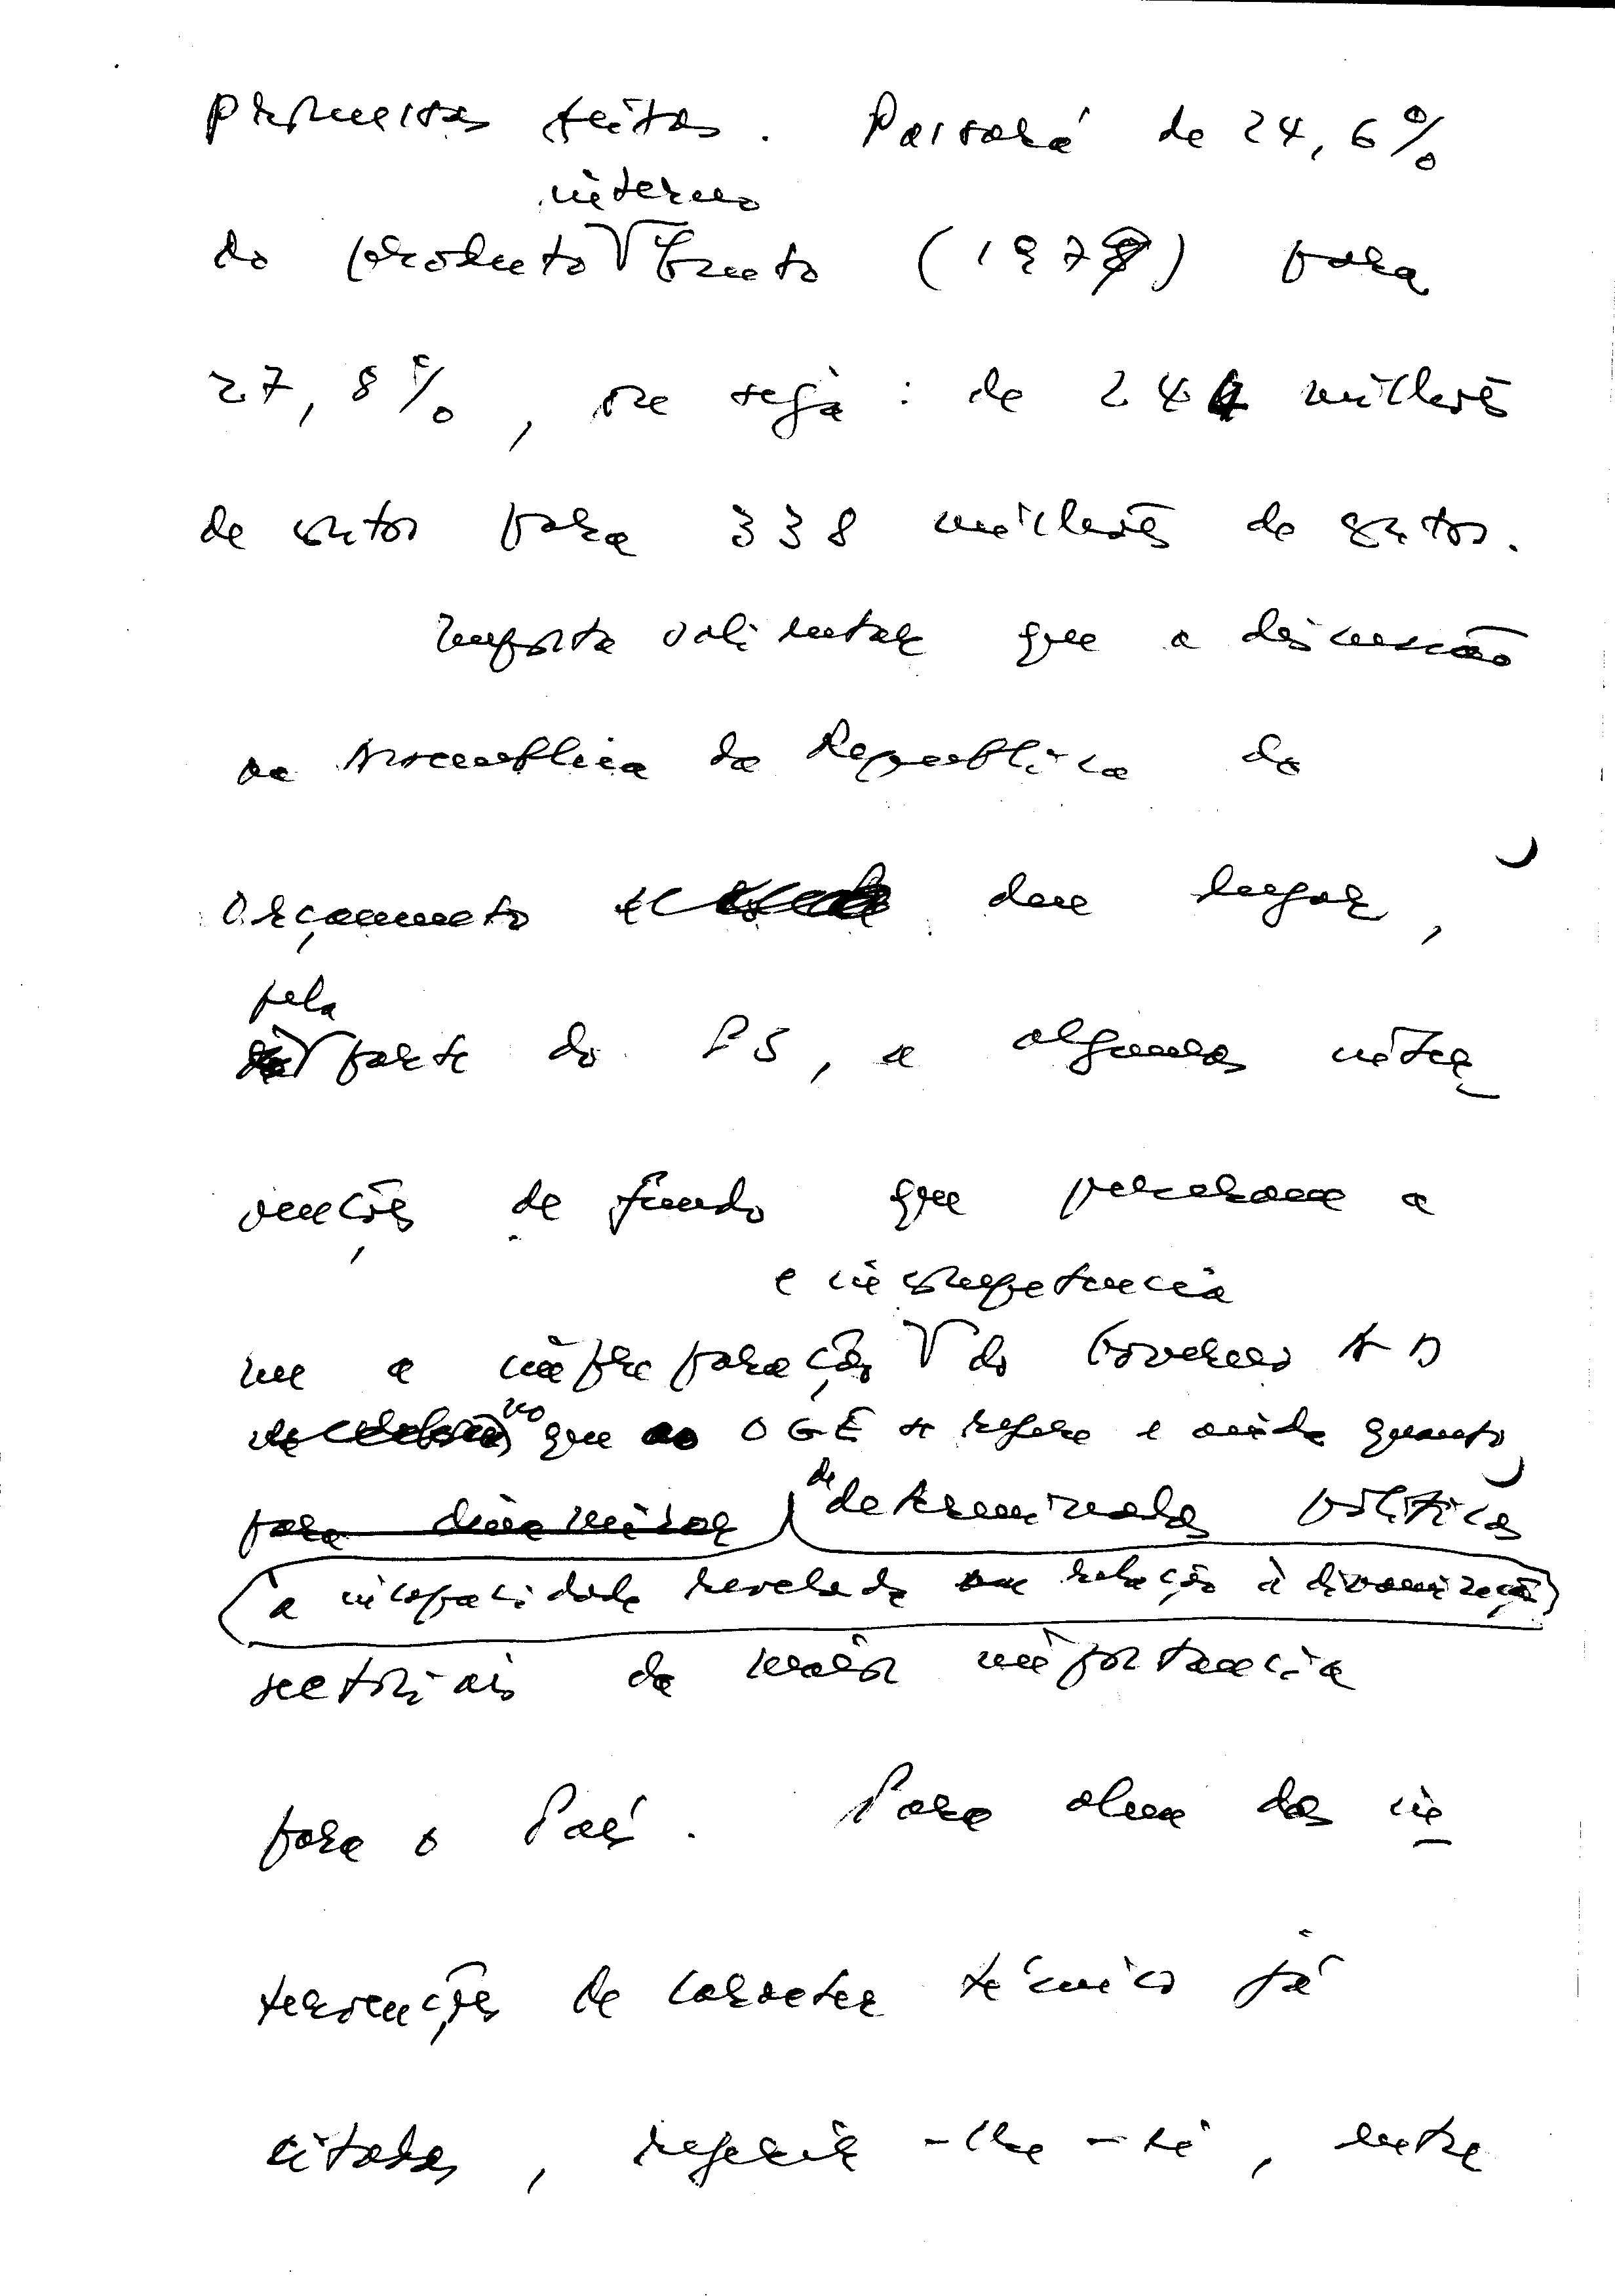 promessas feitas. Passará de 24,6%
interno
do produto bruto (1979) para
27,8%, ou seja: de 244 milhões
de contos para 338 milhões de contos.
Importa salientar que a discussão
na Assembleia da República do
Orçamento deu lugar,
pela
parte do PS, a algumas inter
venções de fundo que provaram a
e incompetência
a impreparação do Governo AD
no que ao OGE se refere e ainda quanto
para dinamizar de determinadas políticas
à incapacidade revelada em relação à dinamização
sectoriais da maior importância
para o País. Para além das in
tervenções de caracter técnico já
citadas, referir-lhe-ei, entre